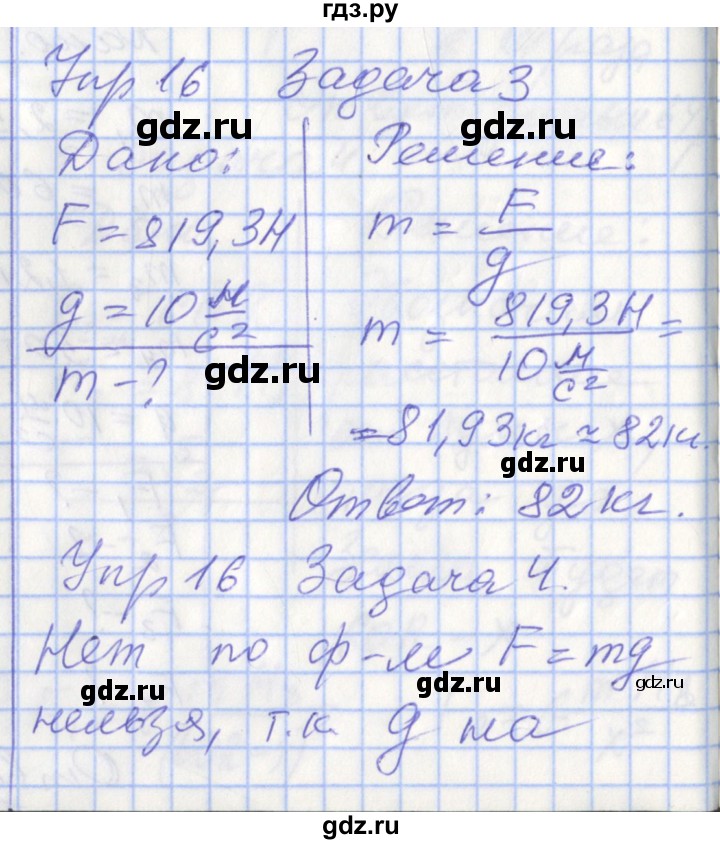 гдз.ру
Упр 16 Задача 3
gdz.ru gdz.ru
Дано: Решение:
F = 819,3Н m = F/g
g = 10 м/с² m = 819,3Н / 10 м/с² =
gdz.ru
m - ?
= 81,93кг ≈ 82кг.
gdz.ru
Ответ: 82 кг.
Упр 16 Задача 4.
gdz.ru
Нет по ф-ле F = mg
gdz.ru gdz.ru gdz.ru
нельзя, т.к. g на
gdz.ru
gdz.ru